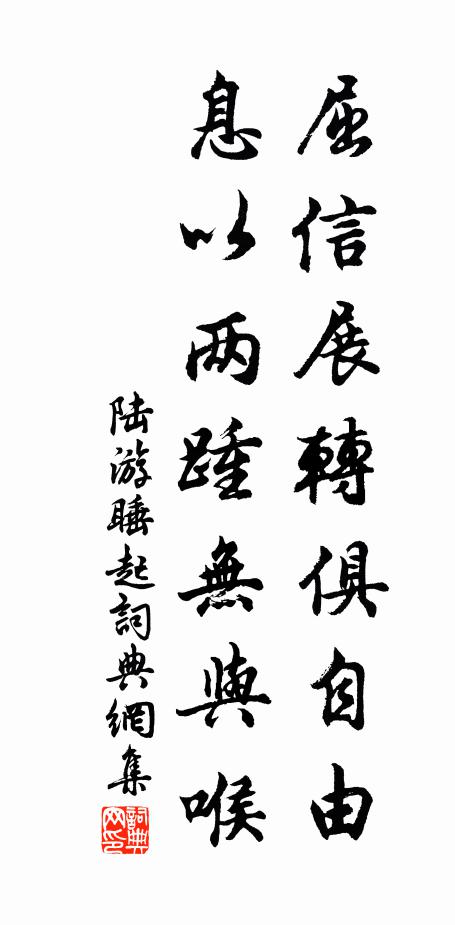 屈信展轉俱自由
息以两踵無與喉
陆游睡起詞典網集
詞典網印